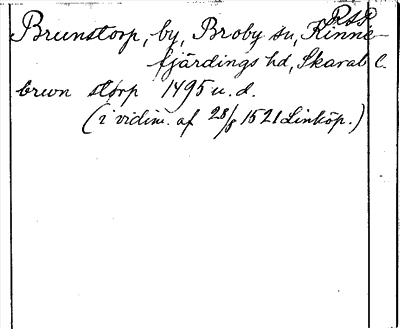 RAP
Brunstorp, by, Broby sn, Kinne-
fjärdings hd, Skarab. l.
brwn storp 1495 u. d.
(i vidim. af 28/8 1521 Linköp.)